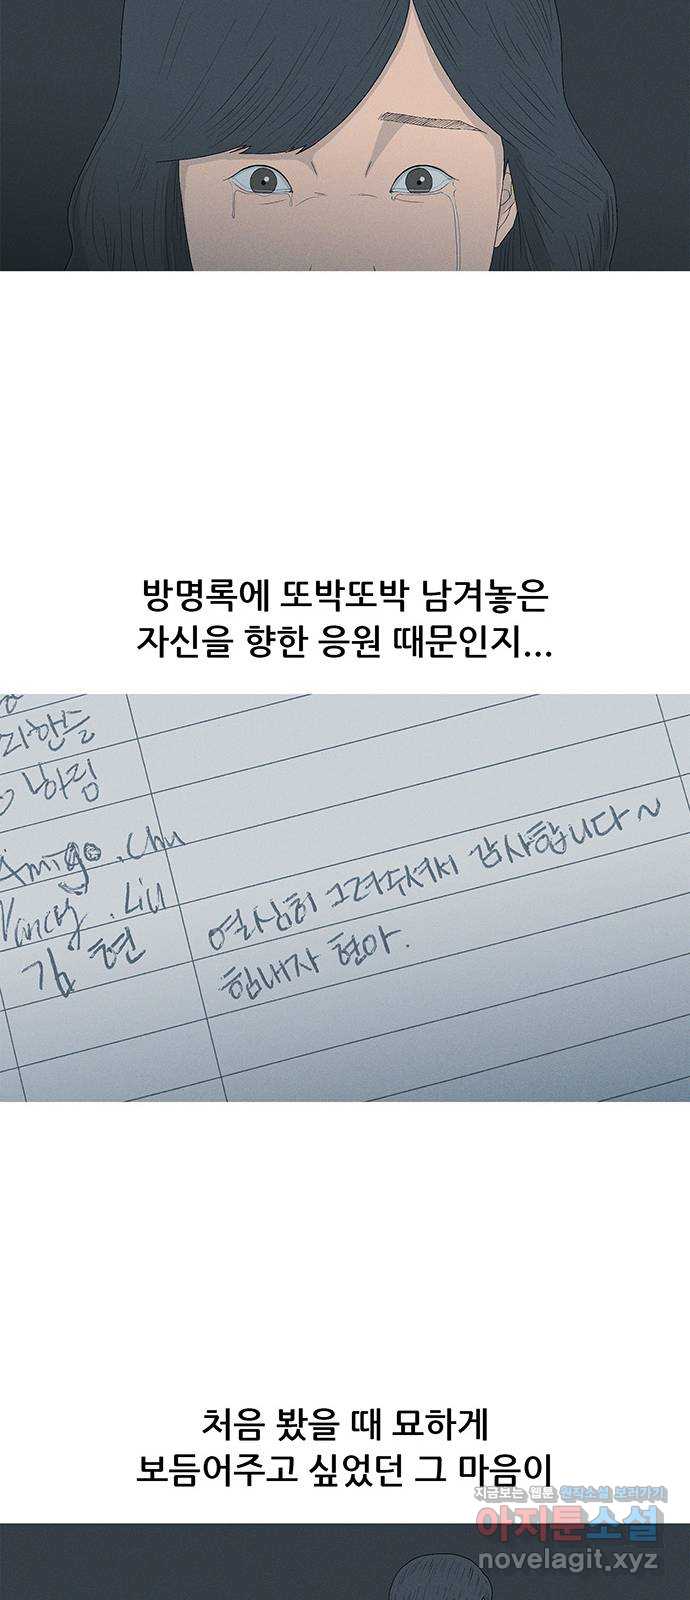 방명록에 또박또박 남겨놓은
자신을 향한 응원 때문인지...
최한들
남하림
Amigo.chu
Nancy.Liu
김현 열심히 그려주셔서 감사합니다~
힘내자 현아.
처음 봤을 때 묘하게
보듬어주고 싶었던 그 마음이
지금보는 웹툰 원작소설 보러가기
아지툰소설
novelagit.xyz